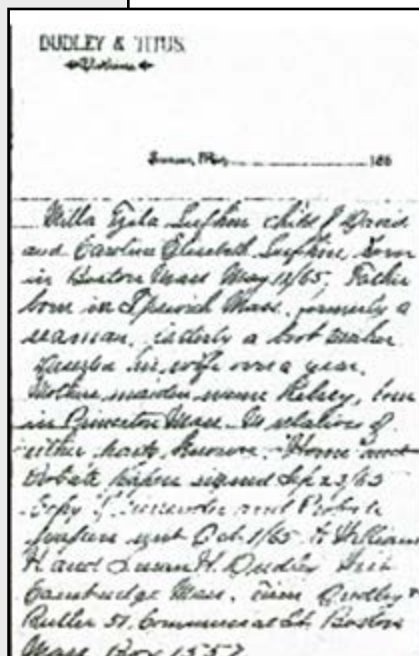 DUDLEY & TITUS
186
Willa Lufkin child of David
and Caroline Elizabeth Lufkin, born
in Boston Mass May 12/65, Father
born in Ipswich Mass. formerly a
seaman, latterly a boot maker
his wife over a year.
Mothers maiden name Kelsey, born
in Princeton Mass. No relatives of
either party known. Home and
Probate papers signed Sep 23/65
Copy of Surrender and Probate
papers sent Oct 1/65 to William
H and Susan H. Dudley
Cambridge Mass. Dudley &
51 Commercial St. Boston
Mass Box 1557